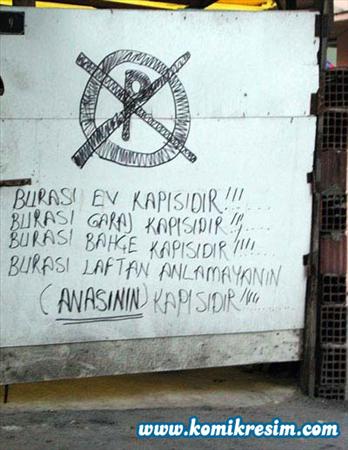 P
BURASI EV KAPISIDIR!!!
BURASI GARAJ KAPISIDIR!!...
BURASI BAHÇE KAPISIDIR!!!!
BURASI LAFTAN ANLAMAYANIN
(ANASININ) KAPISIDIR!!!!....
www.komikresim.com